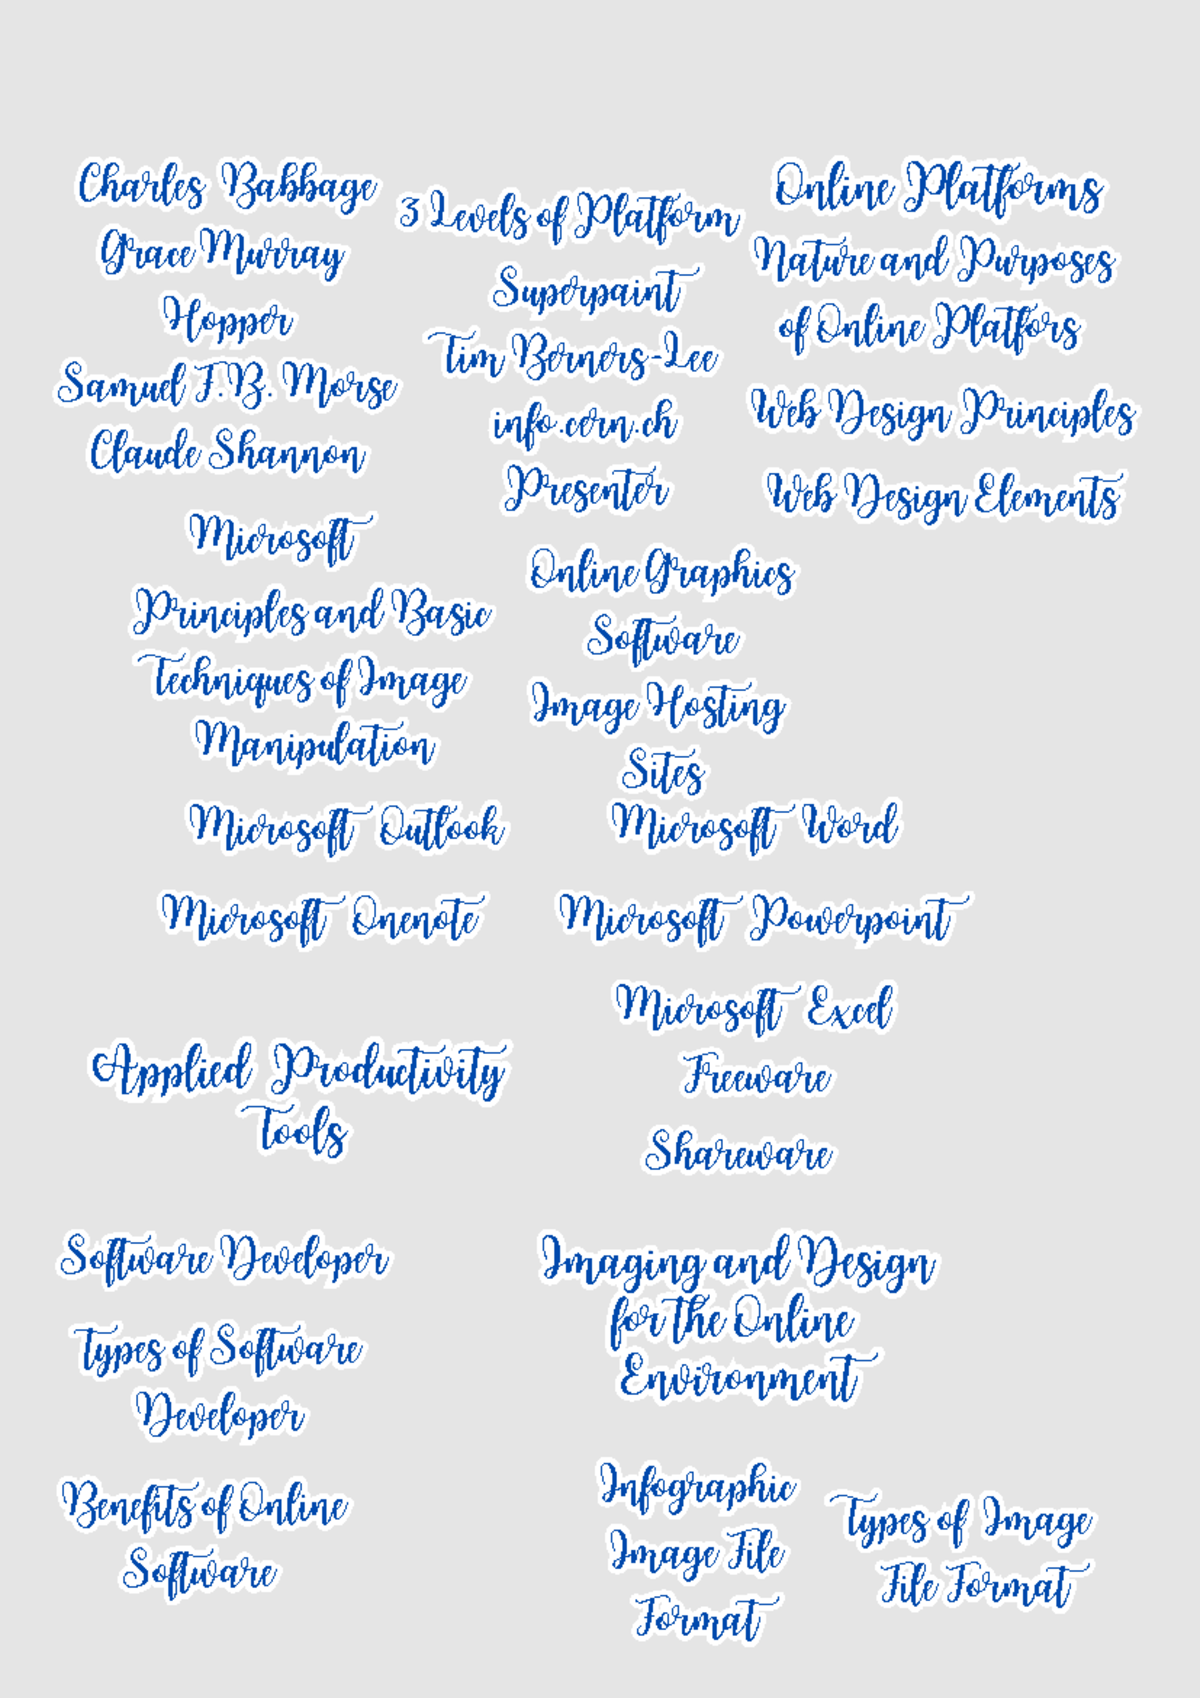 Charles Babbage
Grace Murray
Hopper
Samuel F.B. Morse
Claude Shannon
Microsoft
Principles and Basic
Techniques of Image
Manipulation
Microsoft Outlook
Microsoft Onenote
Applied Productivity
Tools
Software Developer
Types of Software
Developer
Benefits of Online
Software
3 Levels of Platform
Superpaint
Tim Berners-Lee
info.cern.ch
Presenter
Online Graphics
Software
Image Hosting
Sites
Microsoft Word
Microsoft Powerpoint
Microsoft Excel
Freeware
Shareware
Imaging and Design
for the Online
Environment
Infographic
Image File
Format
Types of Image
File Format
Online Platforms
Nature and Purposes
of Online Platfors
Web Design Principles
Web Design Elements